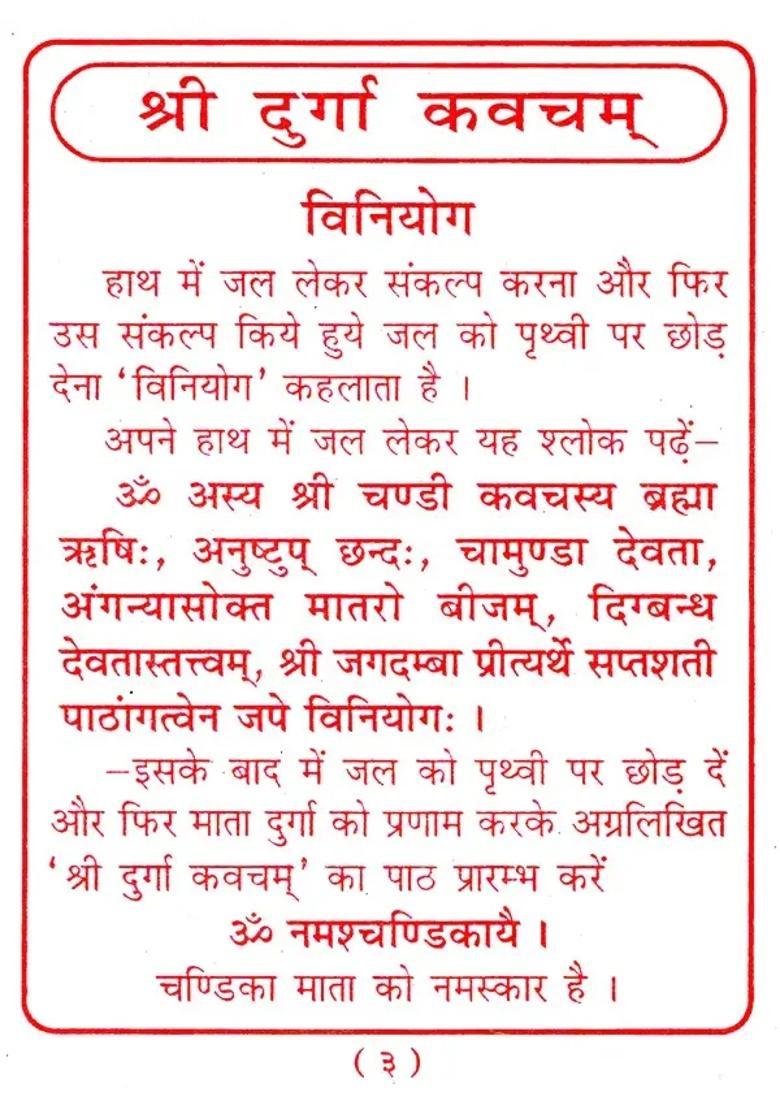 श्री दुर्गा कवचम्
विनियोग
हाथ में जल लेकर संकल्प करना और फिर
उस संकल्प किये हुये जल को पृथ्वी पर छोड़
देना ‘विनियोग’ कहलाता है ।
अपने हाथ में जल लेकर यह श्लोक पढ़ें–
ॐ अस्य श्री चण्डी कवचस्य ब्रह्मा
ऋषिः, अनुष्टुप् छन्दः, चामुण्डा देवता,
अंगन्यासोक्त मातरो बीजम्, दिग्बन्ध
देवतास्तत्त्वम्, श्री जगदम्बा प्रीत्यर्थे सप्तशती
पाठांगत्वेन जपे विनियोगः ।
–इसके बाद में जल को पृथ्वी पर छोड़ दें
और फिर माता दुर्गा को प्रणाम करके अग्रलिखित
‘श्री दुर्गा कवचम्’ का पाठ प्रारम्भ करें
ॐ नमश्चण्डिकायै ।
चण्डिका माता को नमस्कार है ।
( ३ )